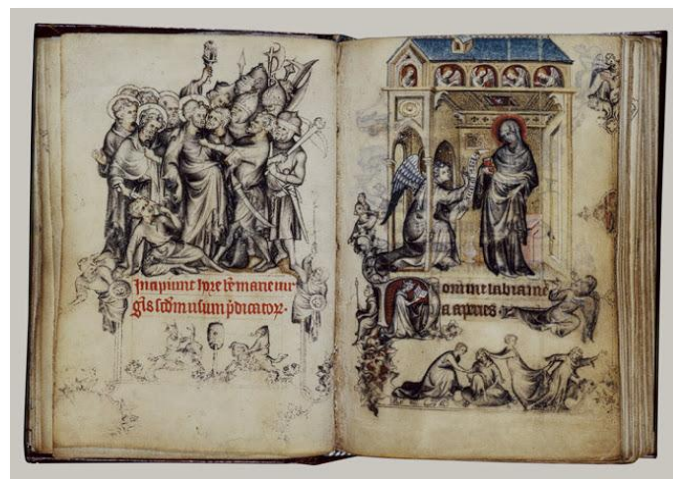 Incipiunt hore b̄e marie uir
ginis scd̄m usum p̄dicatoꝝ.
Domine labia me
a aperies.